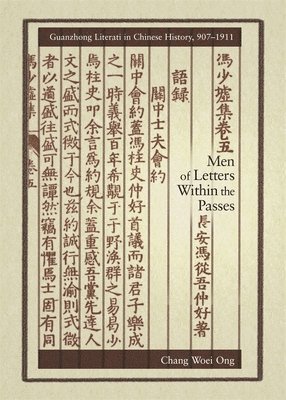 Guanzhong Literati in Chinese History, 907–1911
馮少墟集卷五
語錄
關中士夫會約
長安馮從吾仲好著
關中會約蓋馮柱史仲好首議而諸君子樂成
之一時義舉百年希覯于于野渙群之易易少
焉柱史叩余言爲約規余蓋重感吾黨先達人
文之盛而式微于今也茲約誠行無渝則式微
者以遒盛往盛可無譚然竊有懼焉士固有同
馮少墟集 卷五
Men
of Letters
Within the
Passes
Chang Woei Ong